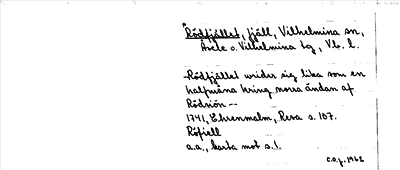 "Rödfjället, fjäll, Vilhelmina sn,
Åsele o. Vilhelmina tg, Vb. l.
-Rödfjället wrider sig lika som en
halfmåna kring norra ändan af
Rödsiön --
1741, Ehrenmalm, Resa s. 107.
Röfiell
a.a., karta mot s. 1.
C.O.J. 1962